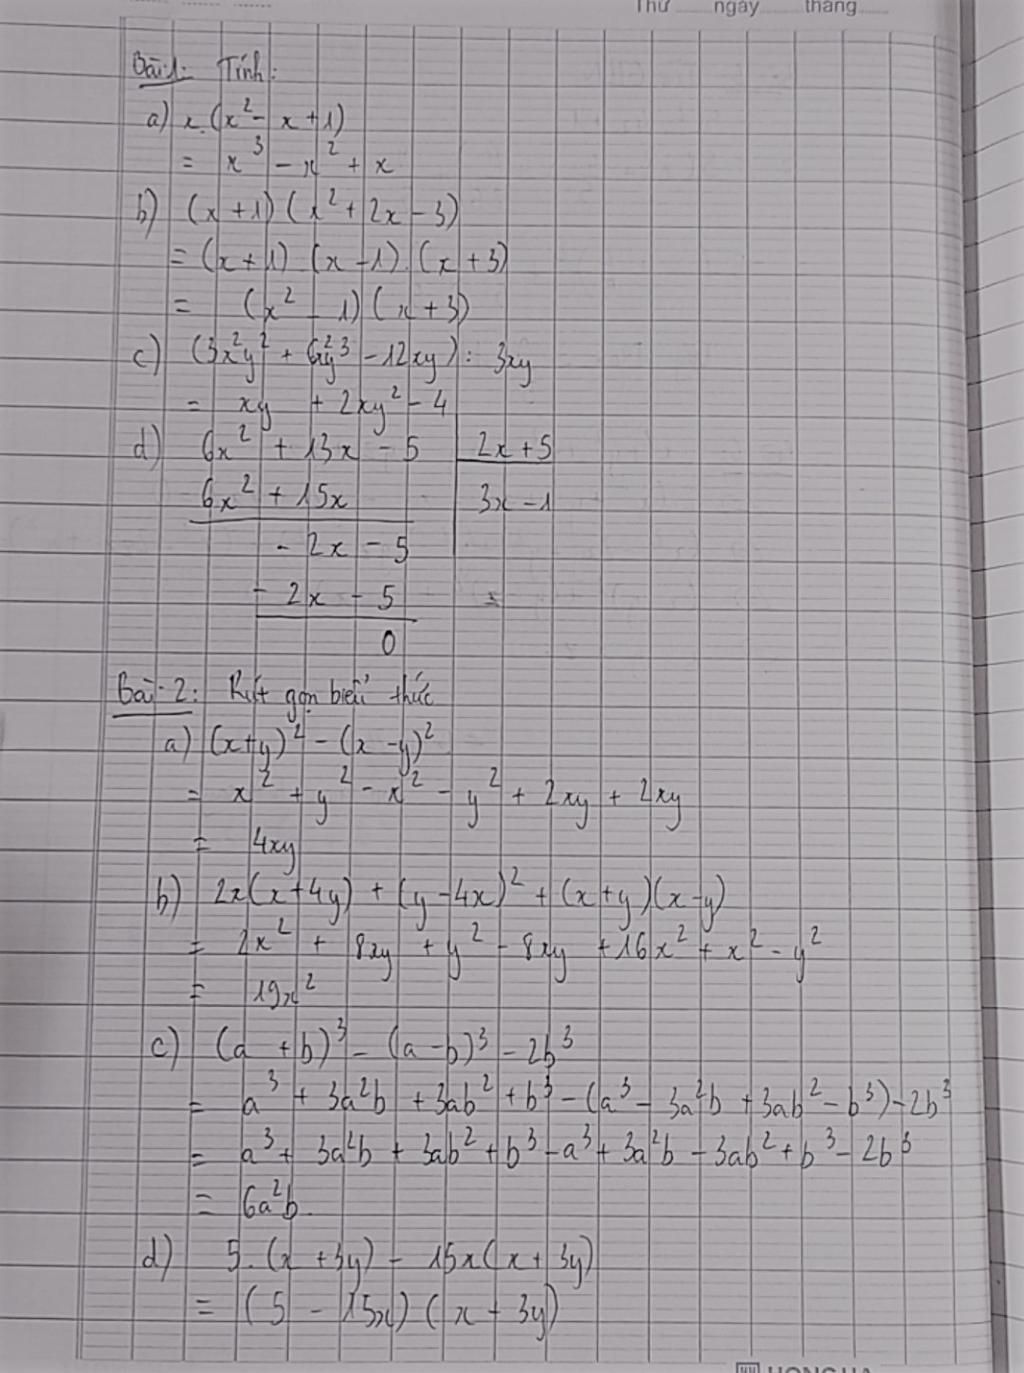 Thứ ngày tháng
Bài 1: Tính:
a) x.(x² - x + 1)
= x³ - x² + x
b) (x + 1) (x² + 2x - 3)
= (x + 1) (x - 1) (x + 3)
= (x² - 1) (x + 3)
c) (3x²y² + 6x²y³ - 12xy) : 3xy
= xy + 2xy² - 4
d) 6x² + 13x - 5 2x + 5
6x² + 15x 3x - 1
- 2x - 5
- 2x - 5 =
0
Bài 2: Rút gọn biểu thức
a) (x+y)² - (x - y)²
= x² + y² - x² - y² + 2xy + 2xy
= 4xy
b) 2x(x + 4y) + (y - 4x)² + (x + y)(x - y)
= 2x² + 8xy + y² - 8xy + 16x² + x² - y²
= 19x²
c) (a + b)³ - (a - b)³ - 2b³
= a³ + 3a²b + 3ab² + b³ - (a³ - 3a²b + 3ab² - b³) - 2b³
= a³ + 3a²b + 3ab² + b³ - a³ + 3a²b - 3ab² + b³ - 2b³
= 6a²b.
d) 5.(x + 3y) - 15x(x + 3y)
= (5 - 15x) (x + 3y)
HONG HA